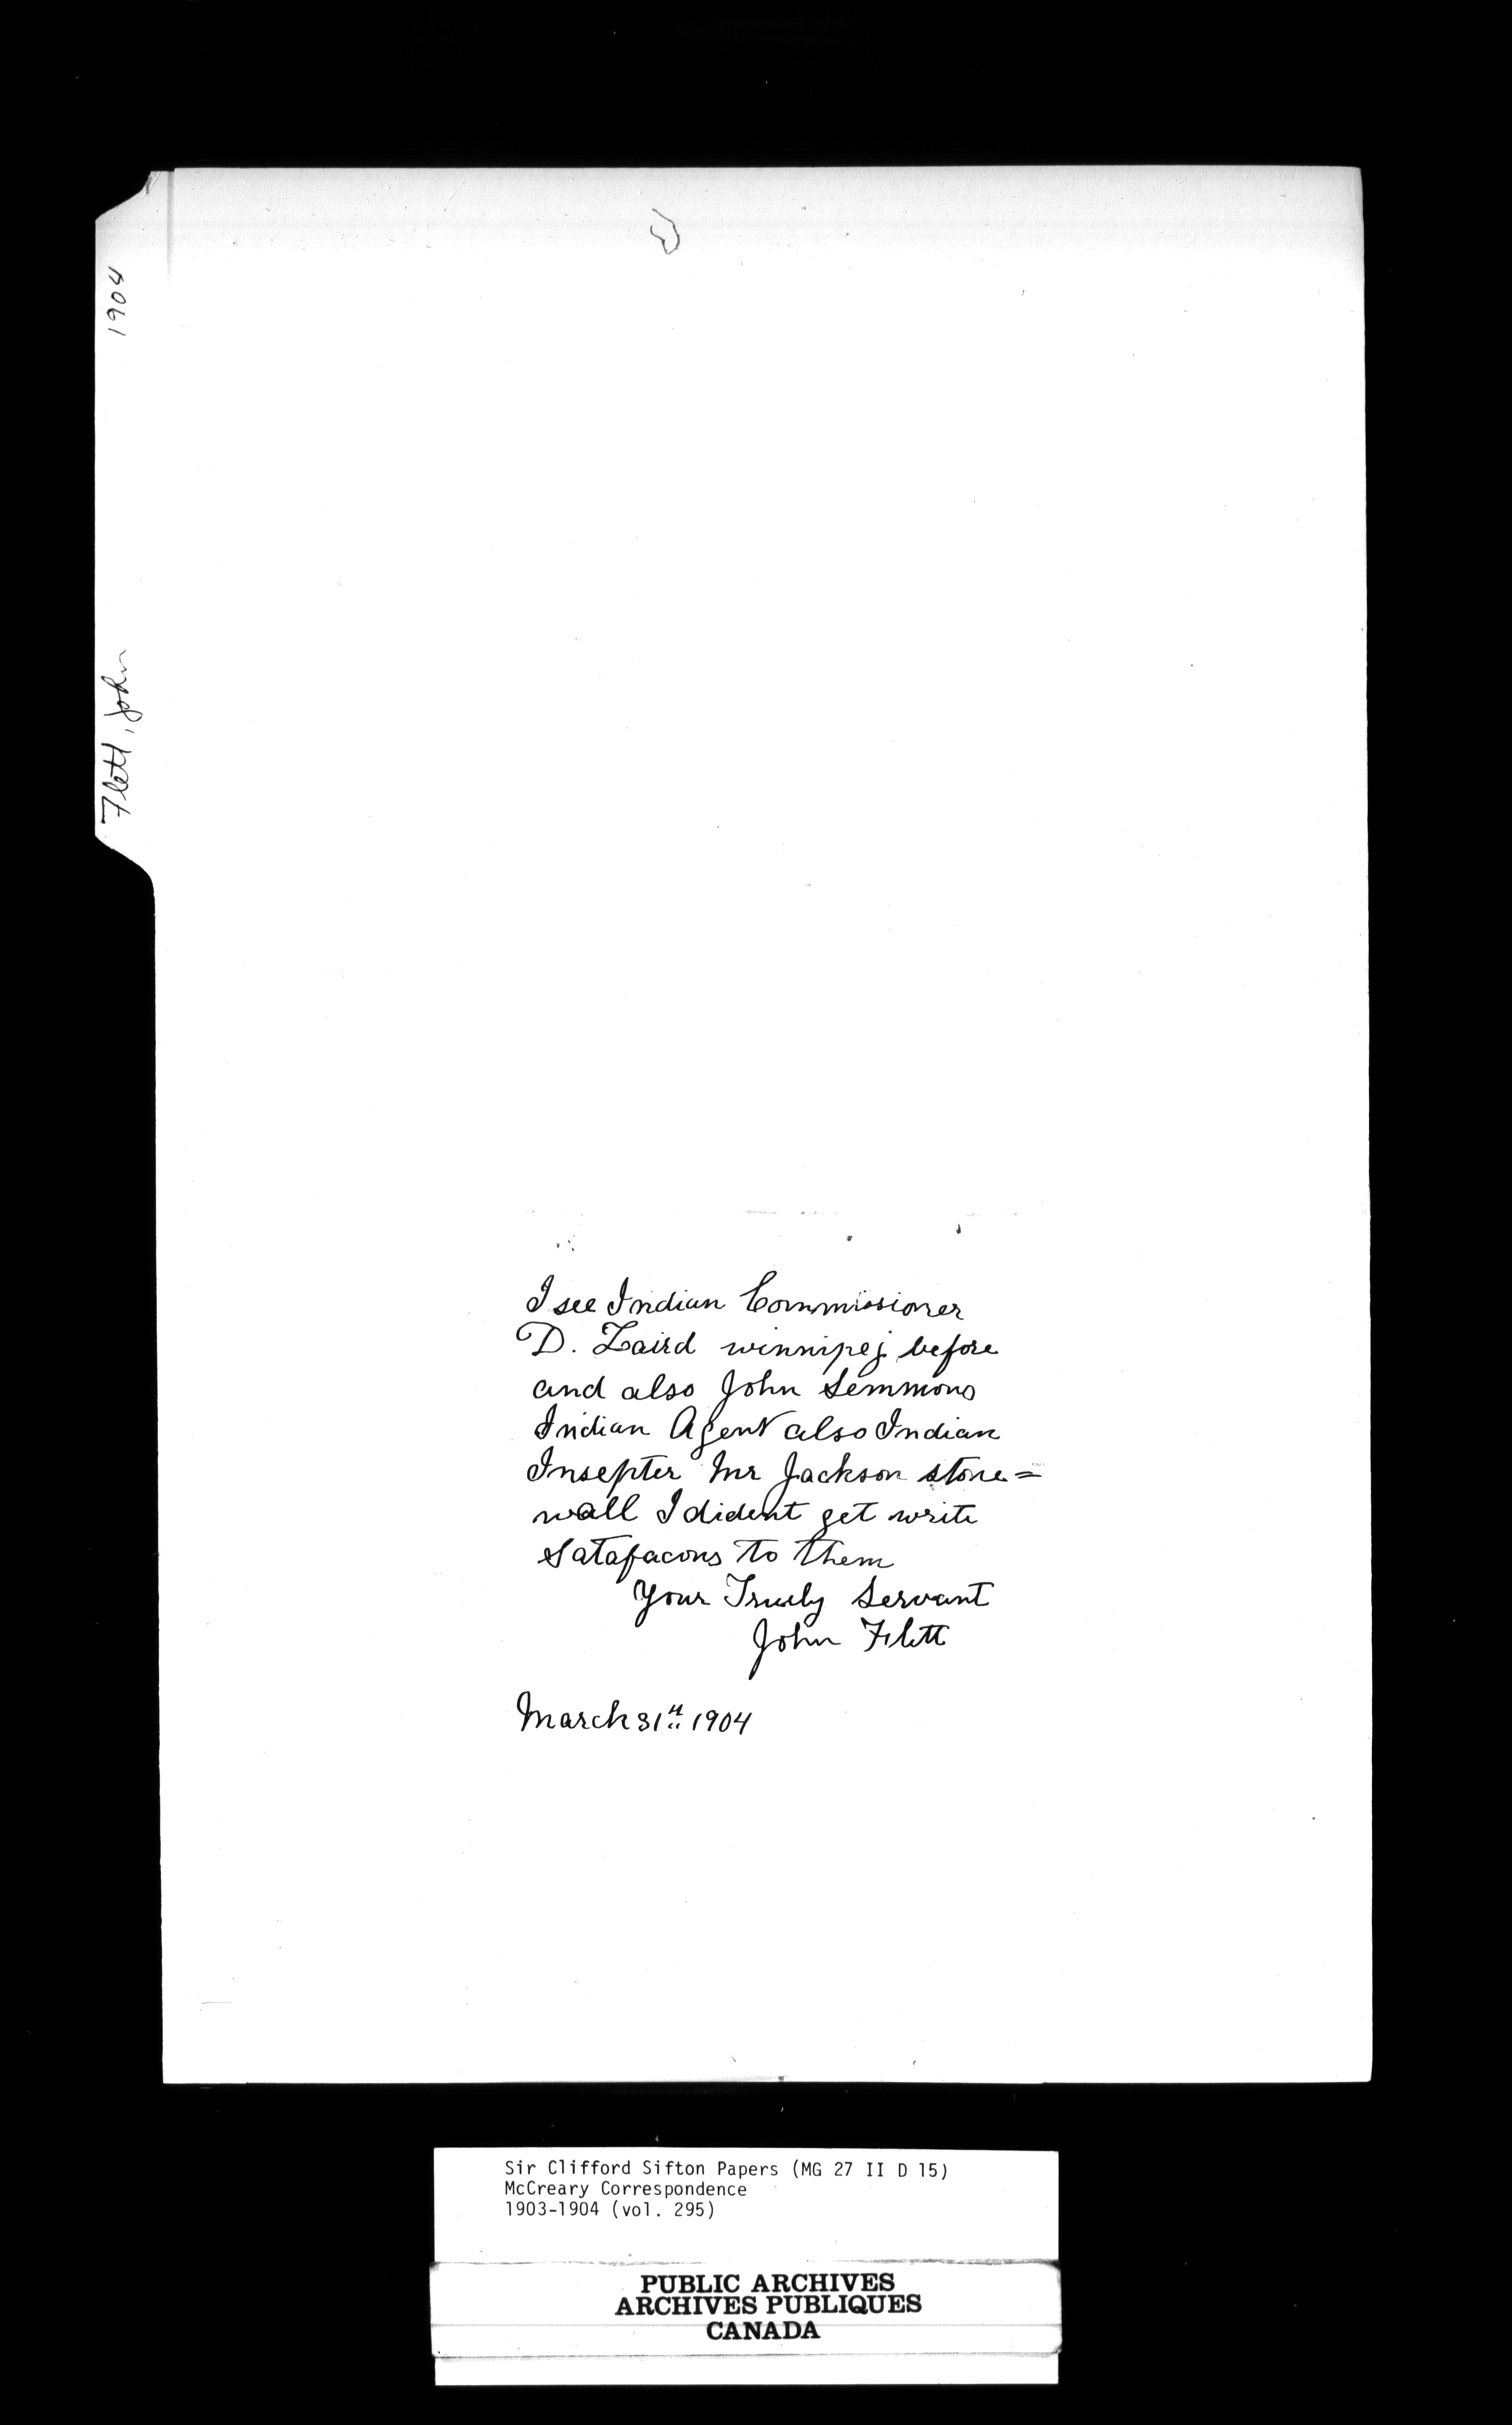 1904
Flett, John
I see Indian Commissioner
D. Laird winnipej before
and also John Semmons
Indian Agent also Indian
Insepter Mr Jackson stone=
wall I dident get write
Satafacons to them
Your Truely Servant
John Flett
March 31th 1904
Sir Clifford Sifton Papers (MG 27 II D 15)
McCreary Correspondence
1903-1904 (vol. 295)
PUBLIC ARCHIVES
ARCHIVES PUBLIQUES
CANADA